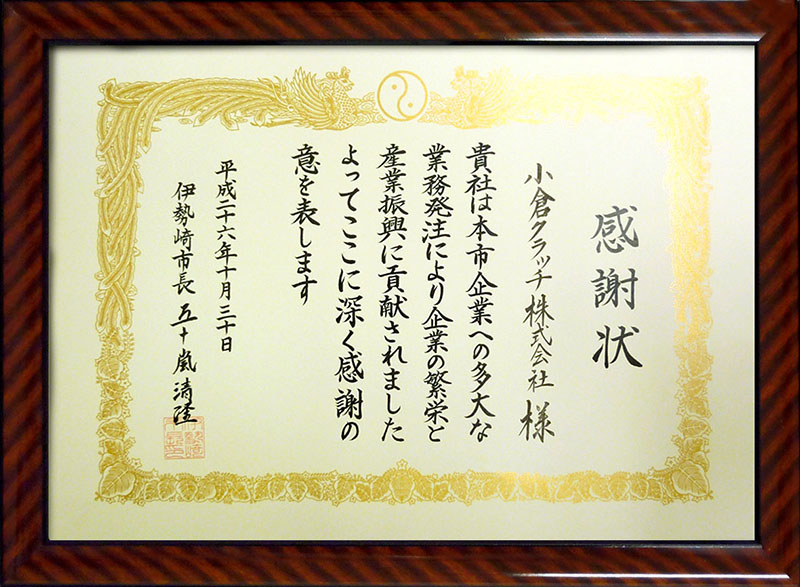 感謝状
小倉クラッチ株式会社 様
貴社は本市企業への多大な
業務発注により企業の繁栄と
産業振興に貢献されました
よってここに深く感謝の
意を表します
平成二十六年十月三十日
伊勢崎市長 五十嵐清隆